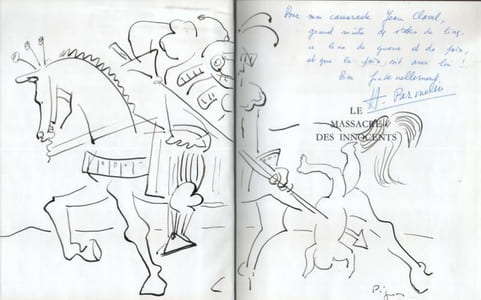 Pour mon camarade Jean Clavel,
grand maître de
ce livre de guerre et de paix,
et que la paix soit avec lui !
Bien fraternellement,
H. Parmelin
LE
MASSACRE
DES INNOCENTS
Pignon